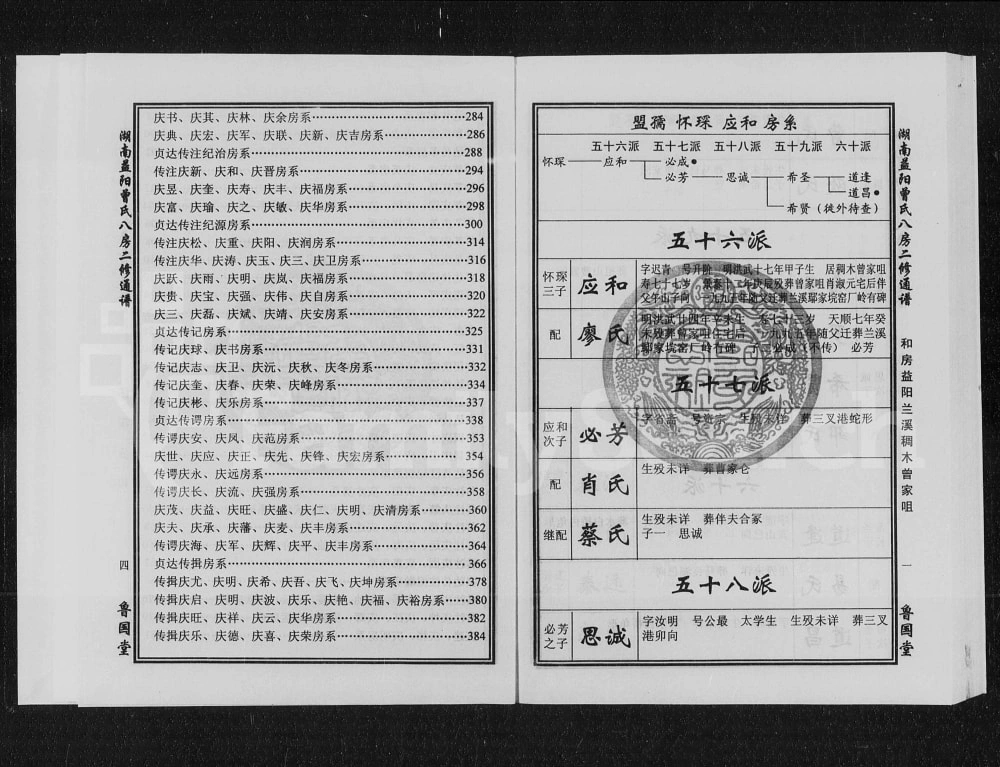 湖南益阳曹氏八房二修通谱
四
鲁国堂
庆书、庆其、庆林、庆余房系……284
庆典、庆宏、庆军、庆联、庆新、庆吉房系……286
贞达传注纪治房系……288
传注庆新、庆和、庆晋房系……294
庆昱、庆奎、庆寿、庆丰、庆福房系……296
庆富、庆瑜、庆之、庆敏、庆华房系……298
贞达传注纪源房系……300
传注庆松、庆重、庆阳、庆润房系……314
传注庆华、庆涛、庆玉、庆三、庆卫房系……316
庆跃、庆雨、庆明、庆岚、庆福房系……318
庆贵、庆宝、庆强、庆伟、庆自房系……320
庆三、庆磊、庆斌、庆靖、庆安房系……322
贞达传记房系……325
传记庆球、庆书房系……331
传记庆志、庆卫、庆沅、庆秋、庆冬房系……332
传记庆奎、庆春、庆荣、庆峰房系……334
传记庆彬、庆乐房系……337
贞达传谔房系……338
传谔庆安、庆凤、庆范房系……353
庆世、庆应、庆正、庆先、庆锋、庆宏房系……354
传谔庆永、庆远房系……356
传谔庆长、庆流、庆强房系……358
庆茂、庆益、庆旺、庆盛、庆仁、庆明、庆清房系……360
庆夫、庆承、庆藩、庆麦、庆丰房系……362
传谔庆海、庆军、庆辉、庆平、庆丰房系……364
贞达传揖房系……366
传揖庆尤、庆明、庆希、庆吾、庆飞、庆坤房系……378
传揖庆启、庆明、庆波、庆乐、庆艳、庆福、庆裕房系……380
传揖庆旺、庆祥、庆云、庆华房系……382
传揖庆乐、庆德、庆喜、庆荣房系……384
盟孺 怀琛 应和 房系
五十六派 五十七派 五十八派 五十九派 六十派
怀琛 应和 必成●
必芳 思诚 希圣 道逢
道昌●
希贤（徙外待查）
五十六派
怀琛三子 应和
字迟青 号升阶 明洪武十七年甲子生 居稠木曾家咀
寿七十七岁 景泰十二年庚辰殁葬曾家咀肖淑元宅后伴
父午山子向 一九九五年随父迁葬兰溪鄢家垸窑厂岭有碑
配 廖氏
明洪武廿四年辛未生 寿七十三岁 天顺七年癸
未殁葬曾家咀住宅后 一九九五年随父迁葬兰溪
鄢家垸窑厂岭有碑 必成（不传） 必芳
五十七派
应和次子 必芳
字省斋 号 生殁未详 葬三叉港蛇形
配 肖氏
生殁未详 葬曹家仑
继配 蔡氏
生殁未详 葬伴夫合冢
子一 思诚
五十八派
必芳之子 思诚
字汝明 号公最 太学生 生殁未详 葬三叉
港卯向
湖南益阳曹氏八房二修通谱
和房益阳兰溪稠木曾家咀
一
鲁国堂